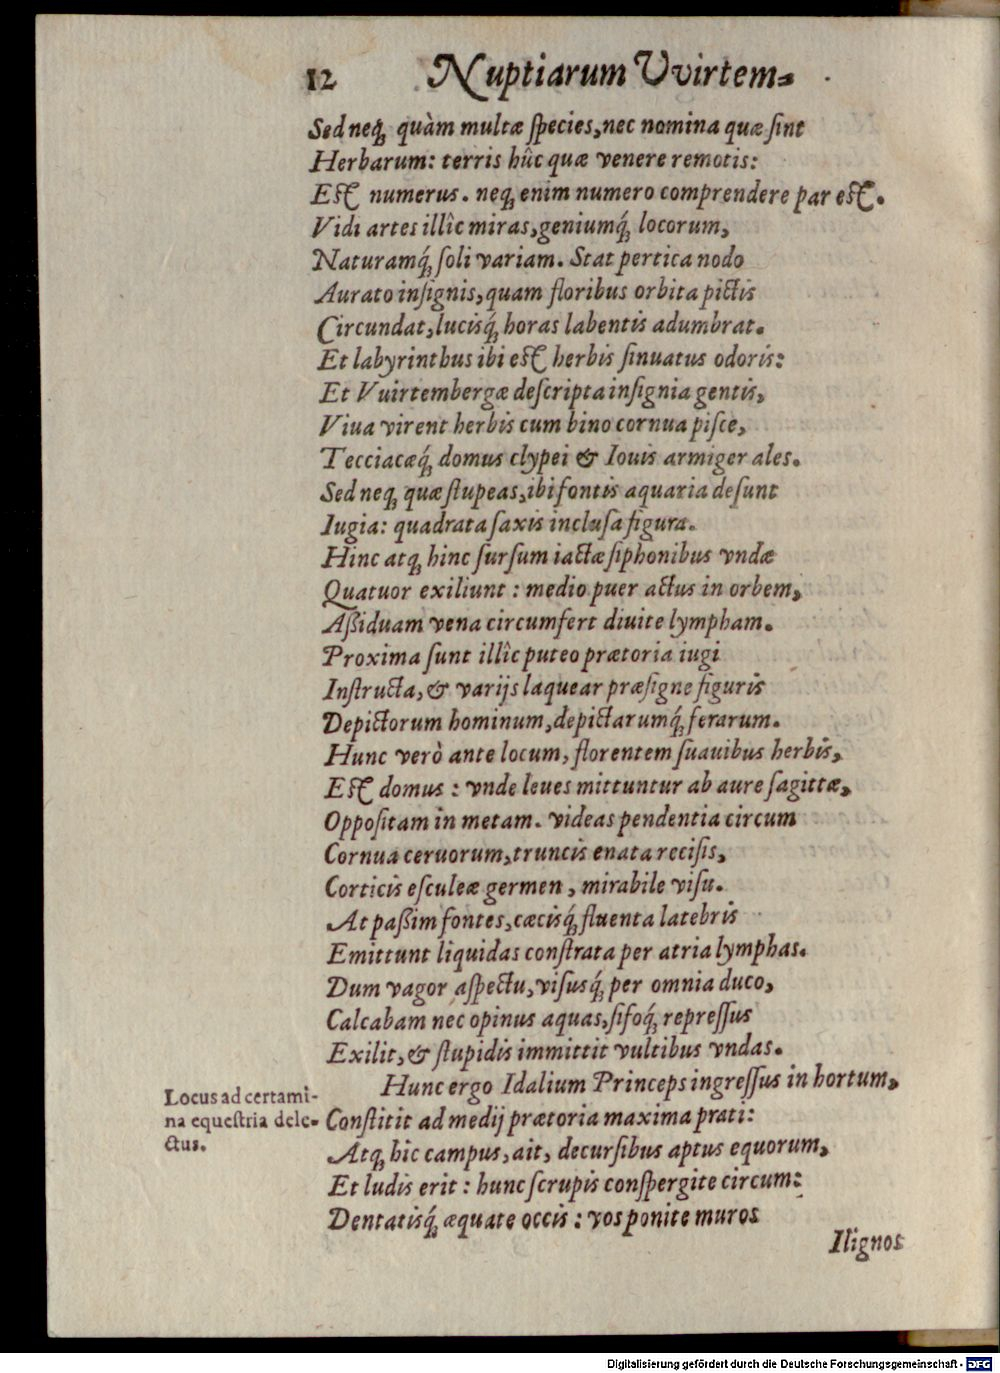 12 Nuptiarum Uvirtem-
Sed neq; quàm multæ ſpecies, nec nomina quæ ſint
Herbarum: terris hûc quæ venere remotis:
Eſt numerus. neq; enim numero comprendere par eſt.
Vidi artes illîc miras, geniumq́; locorum,
Naturamq́; ſoli variam. Stat pertica nodo
Aurato inſignis, quam floribus orbita pictis
Circundat, lucisq́; horas labentis adumbrat.
Et labyrinthus ibi eſt herbis ſinuatus odoris:
Et Vuirtembergæ deſcripta inſignia gentis,
Viua virent herbis cum bino cornua piſce,
Tecciacæq́; domus clypei & Iouis armiger ales.
Sed neq; quæ ſtupeas, ibi fontis aquaria deſunt
Iugia: quadrata ſaxis incluſa figura.
Hinc atq; hinc ſurſum iactæ ſiphonibus vndæ
Quatuor exiliunt: medio puer actus in orbem,
Aßiduam vena circumfert diuite lympham.
Proxima ſunt illîc puteo prætoria iugi
Inſtructa, & varijs laquear præſigne figuris
Depictorum hominum, depictarumq́; ferarum.
Hunc verò ante locum, florentem ſuauibus herbis,
Eſt domus: vnde leues mittuntur ab aure ſagittæ,
Oppoſitam in metam. videas pendentia circum
Cornua ceruorum, truncis enata reciſis,
Corticis eſculeæ germen, mirabile viſu.
At paßim fontes, cæcisq́; fluenta latebris
Emittunt liquidas conſtrata per atria lymphas.
Dum vagor aſpectu, viſusq́; per omnia duco,
Calcabam nec opinus aquas, ſifoq́; repreſſus
Exilit, & ſtupidis immittit vultibus vndas.
Hunc ergo Idalium Princeps ingreſſus in hortum,
Locus ad certami-
na equeſtria dele-
ctus.
Conſtitit ad medij prætoria maxima prati:
Atq; hic campus, ait, decurſibus aptus equorum,
Et ludis erit: hunc ſcrupis conſpergite circum:
Dentatisq́; æquate occis: vos ponite muros
Ilignos
Digitalisierung gefördert durch die Deutsche Forschungsgemeinschaft - DFG